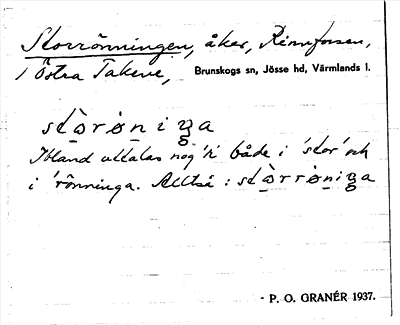 Storrönningen, åker, Rinnforsen,
i Östra Takene, Brunskogs sn, Jösse hd, Värmlands l.
stòrøniŋa
Ibland uttalas nog 'r' både i 'stor' och
i 'rönninga. Alltså : stòrrøniŋa
- P. O. GRANÉR 1937.